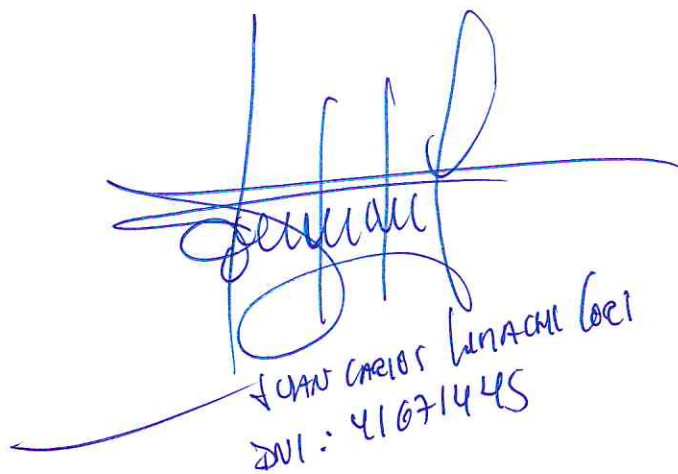 JUAN CARLOS LIMACHI CORI
DNI: 41671445